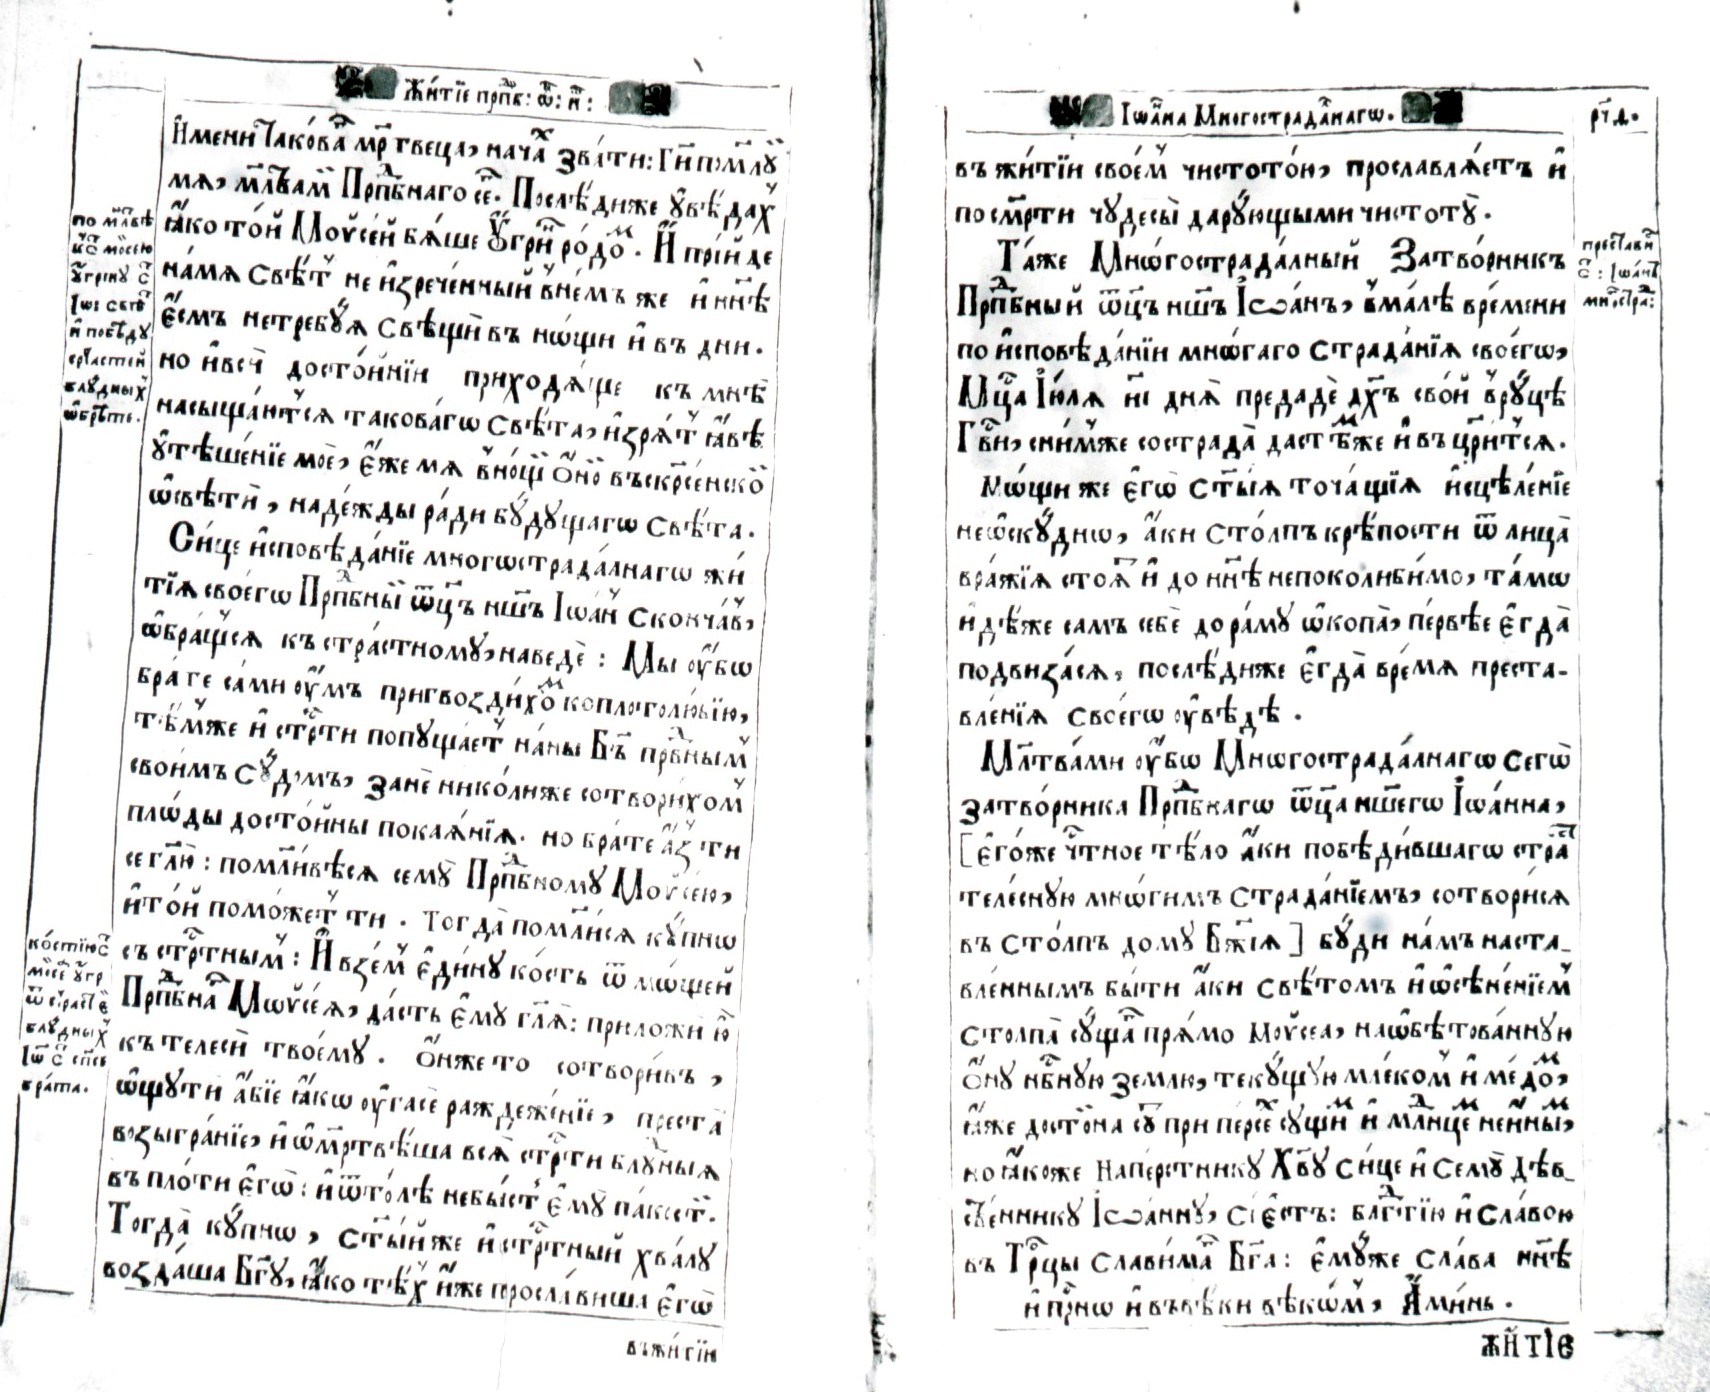 Житїе прпⷣб: ѿц: н҃:
И҆мени І҆а́кова мр҃твеца, нача́ зва́ти: Гн҃и пом҃лꙋ
мѧ, мл҃твам Прпⷣбнаго сеⷢ. Послѣ́диже ᲂу҆вѣ́дах
ꙗ҆́ко то́й Моѵсе́й бѧ́ше Оу҆́грин ро́дом. И҆ прїи́де
на́мѧ свѣ́т не и҆зрече́нный в не́мъ же и҆ нн҃ѣ
є҆́смъ нетре́бꙋѧ свѣщи̑ въ нѡ́щи и҆ въ дни.
но и҆ всѝ досто́йнїи приходѧ́ще къ мнѣ̀
насыща́ютсѧ такова́гѡ свѣ́та, и҆зрѧ́т ꙗ҆́вѣ
ᲂу҆тѣше́нїе моѐ, є҆́же мѧ в но́щ ѻ҆́нꙋ въскрⷭ҇е́нскꙋ
ѡ҆свѣтѝ, наде́жды ра́ди бꙋ́дꙋщагѡ свѣ́та.
Си́це и҆сповѣ́данїе многѡстрада́лнагѡ жи
тїѧ своегѡ̀ Прпⷣбный ѿц҃ъ нш҃ъ І҆ѡа́н сконча́в,
ѡ҆бра́щсѧ къ стра́стномꙋ, наведѐ: Мы ᲂу҆́бѡ
бра́те са́ми ᲂу҆́мъ пригвозди́хом ко плотолю́бїю,
тѣ́мже и҆ стрⷭ҇ти попꙋща́ет на́ны Бг҃ъ прⷣбным
свои́мъ сꙋдо́мъ, занѐ нико́лиже сотвори́хом
плѡды̀ досто́йны покаѧ́нїѧ. но бра́те а҆́з ти
се гл҃ю: помл҃и́всѧ семꙋ̀ Прпⷣбномꙋ Моѵсе́ю,
и҆ то́й помо́жет ти. Тогда̀ помл҃и́сѧ кꙋ́пнѡ
съ стрⷭ҇тным: И҆ взе́м є҆ди́нꙋ ко́сть ѿ мѡще́й
Прпⷣбнаⷢ Мѡѵсе́ѧ, да́сть є҆мꙋ гл҃ѧ: приложѝ ю҆
къ телесѝ твоемꙋ̀. Ѻ҆́нже то сотвори́въ,
ѡ҆щꙋтѝ а҆́бїе ꙗ҆́кѡ ᲂу҆гасѐ раждеже́нїе, преста̀
возыгра́нїе, и҆ ѡ҆мр҃твѣ́ша всѧ̀ стрⷭ҇ти блꙋ́дныѧ
въ пло́ти є҆гѡ̀: и҆ ѿто́лѣ не бы́ст є҆мꙋ̀ па́кост.
Тогда̀ кꙋ́пнѡ, ст҃ы́йже и҆ стрⷭ҇тный хвалꙋ̀
возда́ша Бг҃ꙋ, ꙗ҆́ко тѣ́х и҆́же просла́виша є҆гѡ̀
въ жи́тїи
по мл҃твѣ
кⷭ҇ мо́сею
ᲂу҆́гринꙋ сⷮ
Іѡ: свѣⷮ
и҆ побѣ́дꙋ
стра́стей
блꙋ́дных
ѡ҆брѣ́те.
ко́стїю сⷮ
мо́се́ ᲂу҆гр
ѿ страст є҆
блꙋ́дных
Іѡ сⷮ сп҃се
бра́та.
І҆ѡа́нна Многострада́лнагѡ.
рг҃і.
въ жи́тїи свое́м чистото́ю, прославлѧ́етъ и҆
по смр҃ти чꙋдесы̀ дарꙋ́ющыми чистотꙋ̀.
Та́же Мнѡ́гострада́лный Затво́рникъ
Прпⷣбный ѿц҃ъ нш҃ъ І҆ѡа́нъ, в ма́лѣ вре́мени
по и҆сповѣ́данїи мнѡ́гагѡ страда́нїѧ своегѡ̀,
Мцⷭ҇а І҆ю́лѧ и҃і днѧ̀ предадѐ дх҃ъ сво́й в рꙋ́цѣ
Гⷭ҇ни, сни́мже сострада̀ даст тѣ́мже и҆ въцр҃и́тсѧ.
Мѡ́щи же є҆гѡ̀ ст҃ы́ѧ точа́щїѧ и҆сцѣле́нїе
неѡ҆скꙋ́днѡ, а҆́ки сто́лпъ крѣ́пости ѿ лица̀
вра́жїѧ стоѧ̀ и҆ до нн҃ѣ непоколиби́мо, та́мѡ
и҆дѣ́же самъ себѐ до ра́мꙋ ѡ҆копа̀, пе́рвѣе є҆гда̀
подвиза́сѧ, послѣ́диже є҆гда̀ вре́мѧ преста-
вле́нїѧ своегѡ̀ ᲂу҆вѣ́дѣ.
Мл҃тва́ми ᲂу҆́бѡ Мнѡгострада́лнагѡ сегѡ̀
затво́рника Прпⷣбнагѡ ѿц҃а нш҃егѡ І҆ѡа́нна,
[є҆го́же чⷭ҇тное тѣ́ло а҆́ки побѣди́вшагѡ страⷭ҇
теле́снꙋю мнѡ́гимъ страда́нїемъ, сотвори́сѧ
въ сто́лпъ до́мꙋ Бж҃їѧ] бꙋ́ди на́мъ наста-
вле́ннымъ бы́ти а҆́ки свѣ́томъ и҆ ѡ҆сѣне́нїем
столпа̀ сꙋ́щаⷢ прѧ́мо Моѵ́сеа, на ѡ҆бѣтова́ннꙋю
ѻ҆́нꙋ нбⷭ҇нꙋю зе́млю, текꙋ́щꙋю млеко́м и҆ ме́дом,
ꙗ҆́же досто́на сꙋ́ при пе́рсех сꙋ́щим и҆ младⷣнце неи҆ным,
но ꙗ҆́коже напе́рстникꙋ Хв҃ꙋ си́це и҆ семꙋ̀ Дѣ́в-
ст҃веннику І҆ѡа́ннꙋ, сі́ є҆́стъ: блгⷣтїю и҆ сла́вою
въ Трⷪ҇цы слави́маⷢ Бг҃а: є҆мꙋ́же сла́ва нн҃ѣ
и҆ при́снѡ и҆ въ вѣ́ки вѣкѡ́м, А҆ми́нь.
житїе
преста́ви
сⷮ: І҆ѡа́нъ
мнѡ́гостра: